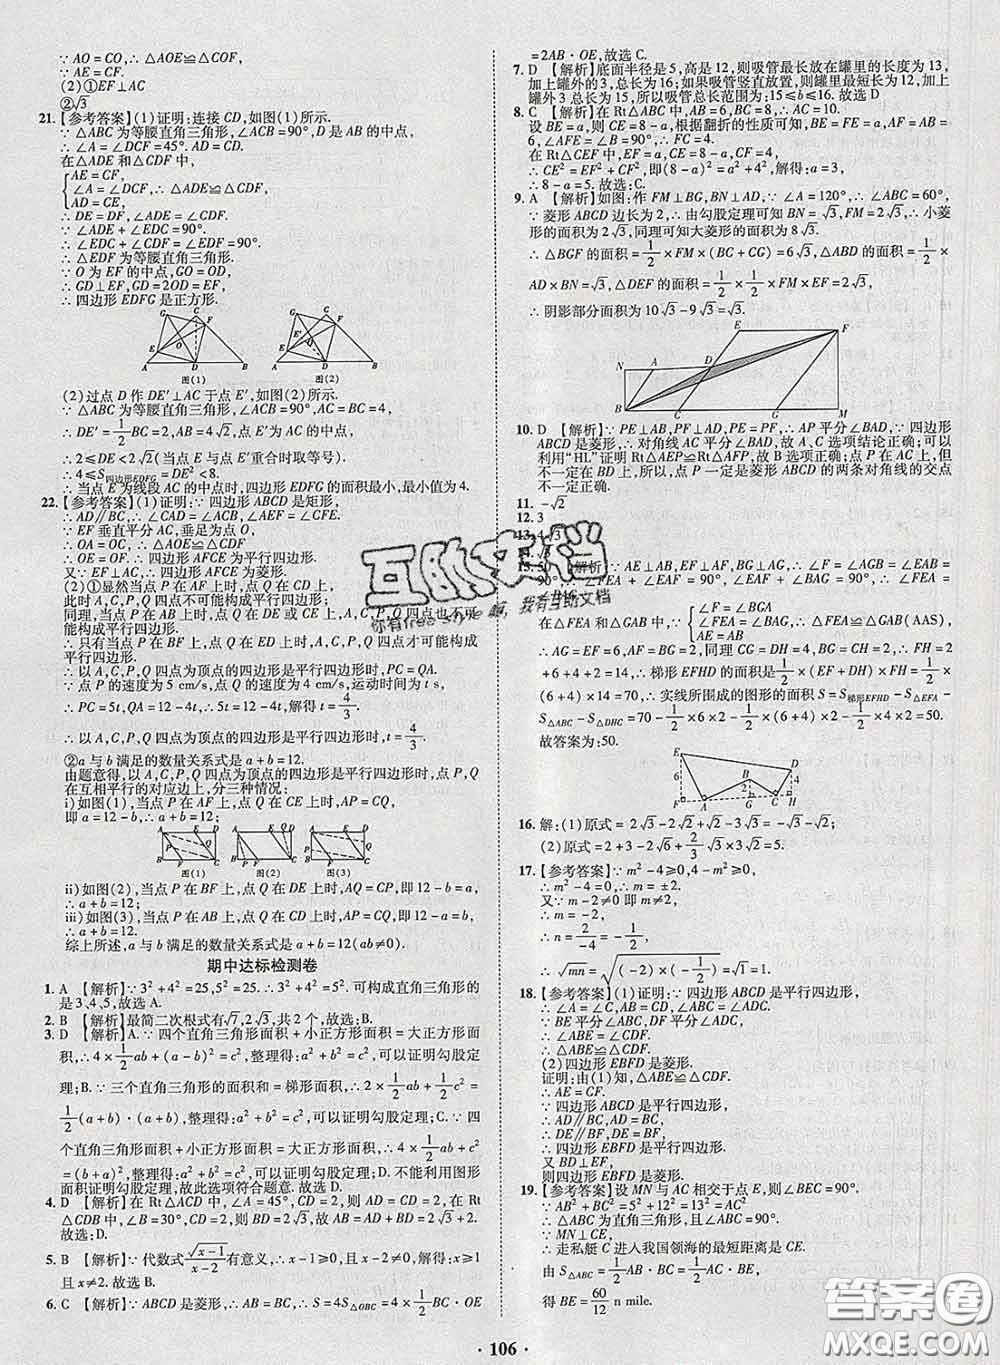 ∵AO=CO,∴△AOE≌△COF,
∴AE=CF.
(2)①EF⊥AC
②√3
21.【参考答案】(1)证明:连接CD,如图(1)所示.
∵△ABC为等腰直角三角形,∠ACB=90°,D是AB的中点,
∴∠A=∠DCF=45°.AD=CD.
在△ADE和△CDF中,
{AE=CF,
∠A=∠DCF,∴△ADE≌△CDF.
AD=CD.
∴DE=DF,∠ADE=∠CDF.
∵∠ADE+∠EDC=90°,
∴∠EDC+∠CDF=∠EDF=90°.
∴△EDF为等腰直角三角形.
∵O为EF的中点,GO=OD,
∴GD⊥EF,GD=2OD=EF,
∴四边形EDFG是正方形.
G C F E O A D B
图(1)
G C F E' E O A D B
图(2)
(2)过点D作DE'⊥AC于点E',如图(2)所示.
∵△ABC为等腰直角三角形,∠ACB=90°,AC=BC=4,
∴DE'=1/2BC=2,AB=4√2,点E'为AC的中点,
∴2≤DE<2√2(点E与点E'重合时取等号).
∴4≤S四边形EDFG=DE²<8.
∴当点E为线段AC的中点时,四边形EDFG的面积最小,最小值为4.
22.【参考答案】(1)证明:∵四边形ABCD是矩形,
∴AD∥BC,∴∠CAD=∠ACB,∠AEF=∠CFE.
∵EF垂直平分AC,垂足为O,
∴OA=OC,∴△AOE≌△COF,
∴OE=OF.∴四边形AFCE为平行四边形.
又∵EF⊥AC,∴四边形AFCE为菱形.
(2)①显然当点P在AF上,点Q在CD上时,
此时A,C,P,Q四点不可能构成平行四边形;
同理,当点P在AB上时,点Q在DE或CE上,A,C,P,Q四点也不可
能构成平行四边形.
∴只有当点P在BF上,点Q在ED上时,A,C,P,Q四点才可能构成
平行四边形.
∴以A,C,P,Q四点为顶点的四边形是平行四边形时,PC=QA.
∵点P的速度为5 cm/s,点Q的速度为4 cm/s,运动时间为t s,
∴PC=5t,QA=12-4t,∴5t=12-4t,解得t=4/3.
∴以A,C,P,Q四点为顶点的四边形是平行四边形时,t=4/3.
②a与b满足的数量关系式是a+b=12.
由题意得,以A,C,P,Q四点为顶点的四边形是平行四边形时,点P,Q
在互相平行的对应边上,分三种情况:
i)如图(1),当点P在AF上,点Q在CE上时,AP=CQ,
即a=12-b,∴a+b=12;
A E D P Q B F C
(1)
A E Q D B P F C
(2)
A E D P Q B F C
(3)
ii)如图(2),当点P在BF上,点Q在DE上时,AQ=CP,即12-b=a,
∴a+b=12;
iii)如图(3),当点P在AB上,点Q在CD上时,AP=CQ,即12-a=b,
∴a+b=12.
综上所述,a与b满足的数量关系式是a+b=12(ab≠0).
期中达标检测卷
1. A 【解析】∵3²+4²=25,5²=25.∴3²+4²=5².可构成直角三角形的
是3,4,5,故选A.
2. B 【解析】最简二次根式有√7,2√3,共2个,故选:B.
3. D 【解析】A.∵四个直角三角形面积+小正方形面积=大正方形面
积,∴4×1/2ab+(a-b)²=c²,整理得:a²+b²=c²,可以证明勾股定
理;B.∵三个直角三角形的面积和=梯形面积,∴2×1/2ab+1/2c²=
1/2(a+b)·(a+b),整理得:a²+b²=c²,可以证明勾股定理;C.∵四
个直角三角形面积+小正方形面积=大正方形面积,∴4×1/2ab+c²=
(a+b)²,整理得:a²+b²=c²,可以证明勾股定理;D.不能利用图形
面积证明勾股定理,故此选项符合题意.故选:D.
4. D 【解析】在Rt△ACD中,∠A=45°,CD=2,则AD=CD=2,在Rt
△CDB中,∠B=30°,CD=2,则BD=2√3,故AB=AD+BD=2√3+2.
故选:D.
5. B 【解析】∵代数式√(x-1)/(x-2)有意义,∴x-1≥0,且x-2≠0,解得:x≥1
且x≠2.故选B.
6. C 【解析】∵ABCD是菱形,∴AB=BC,∴S=4S△OBC=4×1/2BC·OE
=2AB·OE,故选C.
7. D 【解析】底面半径是5,高是12,则吸管最长放在罐里的长度为13,
加上罐外3,总长为16;如果吸管竖直放置,则罐里最短长为12,加上
罐外3,总长为15,所以吸管总长范围为:15≤b≤16.故选D
8. C 【解析】在Rt△ABC中,AB=6,BC=8,∴AC=10.
设BE=a,则CE=8-a,根据翻折的性质可知,BE=FE=a,AF=AB=
6,∠AFE=∠B=90°,∴FC=4.
在Rt△CEF中,EF=a,CE=8-a,CF=4,
∴CE²=EF²+CF²,即(8-a)²=a²+4²,解得:a=3,
∴8-a=5.故选:C.
9. A 【解析】如图:作FM⊥BG,BN⊥AD,∵∠A=120°,∴∠ABC=60°,
∵菱形ABCD边长为2,∴由勾股定理可知BN=√3,FM=2√3,∴小菱
形的面积为2√3,同理可知大菱形的面积为8√3.
∴△BGF的面积=1/2×FM×(BC+CG)=6√3,△ABD的面积=1/2×
AD×BN=√3,△DEF的面积=1/2×1/2×FM×AD=2√3,
∴阴影部分面积为10√3-9√3=√3.
N A D E F B C G M
10. D 【解析】∵PE⊥AB,PF⊥AD,PE=PF,∴AP平分∠BAD,∵四边形
ABCD是菱形,∴对角线AC平分∠BAD,故A、C选项结论正确;可以
利用“HL”证明Rt△AEP≌Rt△AFP,故B选项结论正确;因点P
不一定在BD上,所以,点P一定是菱形ABCD的两条对角线的交点
不一定正确.故选:D.
11. -√2
12. 3
13. 4√3
15. 50 【解析】
∠F=∠BGA
在△FEA和△GAB中{∠FEA=∠GAB,∴△FEA≌△GAB(AAS),
AE=AB
∴AG=EF=6,AF=BG=2,同理CG=DH=4,BG=CH=2,∴FH=
2+6+4+2=14,∴梯形EFHD的面积=1/2×(EF+DH)×FH=1/2
×(6+4)×14=70,∴实线所围成的图形的面积S=S梯形EFHD-S△EFA-
S△ABC-S△DHC=70-1/2×6×2-1/2×(6+4)×2-1/2×4×2=50.
故答案为:50.
E D 6 B 4 2 F A G C H
16. 解:(1)原式=2√3-2√2+√2-3√3=-√3-√2;
(2)原式=2+3-2√6+2/3√3×3√2=5.
17.【参考答案】∵m²-4≥0,4-m²≥0,
∴m²-4=0,∴m=±2.
又∵m-2≠0即m≠2,
∴m=-2.
∴n=2/-4=-1/2,
∴√mn=√(-2)×(-1/2)=1.
18.【参考答案】(1)证明:∵四边形ABCD是平行四边形,
∴∠A=∠C,AB=CD,∠ABC=∠ADC,
∵BE平分∠ABC,DF平分∠ADC,
∴∠ABE=∠CDF.
∴△ABE≌△CDF.
(2)四边形EBFD是菱形.
证明:由(1)知,△ABE≌△CDF.
∴AE=CF.
∵四边形ABCD是平行四边形,
∴AD∥BC,AD=BC.
∴DE∥BF,DE=BF,
∴四边形EBFD是平行四边形.
又∵BD⊥EF,
则四边形EBFD是菱形.
19.【参考答案】设MN与AC相交于点E,∠BEC=90°.
∵AB²+BC²=5²+12²=13²=AC²,
∴△ABC为直角三角形,且∠ABC=90°.
∵MN⊥CE,
∴走私艇C进入我国领海的最短距离是CE.
由S△ABC=1/2AB·BC=1/2AC·BE,
得BE=60/13 n mile.
互助文档
你有free style 啊,我有互助文档
答案圈
MXQE.COM
·106·